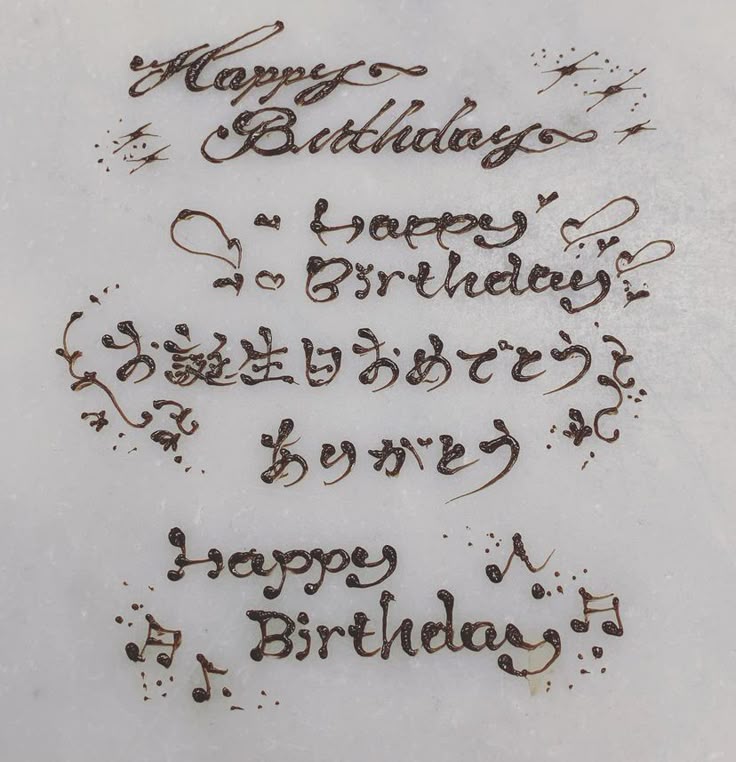 Happy
Birthday
Happy
Birthday
お誕生日おめでとう
ありがとう
Happy
Birthday